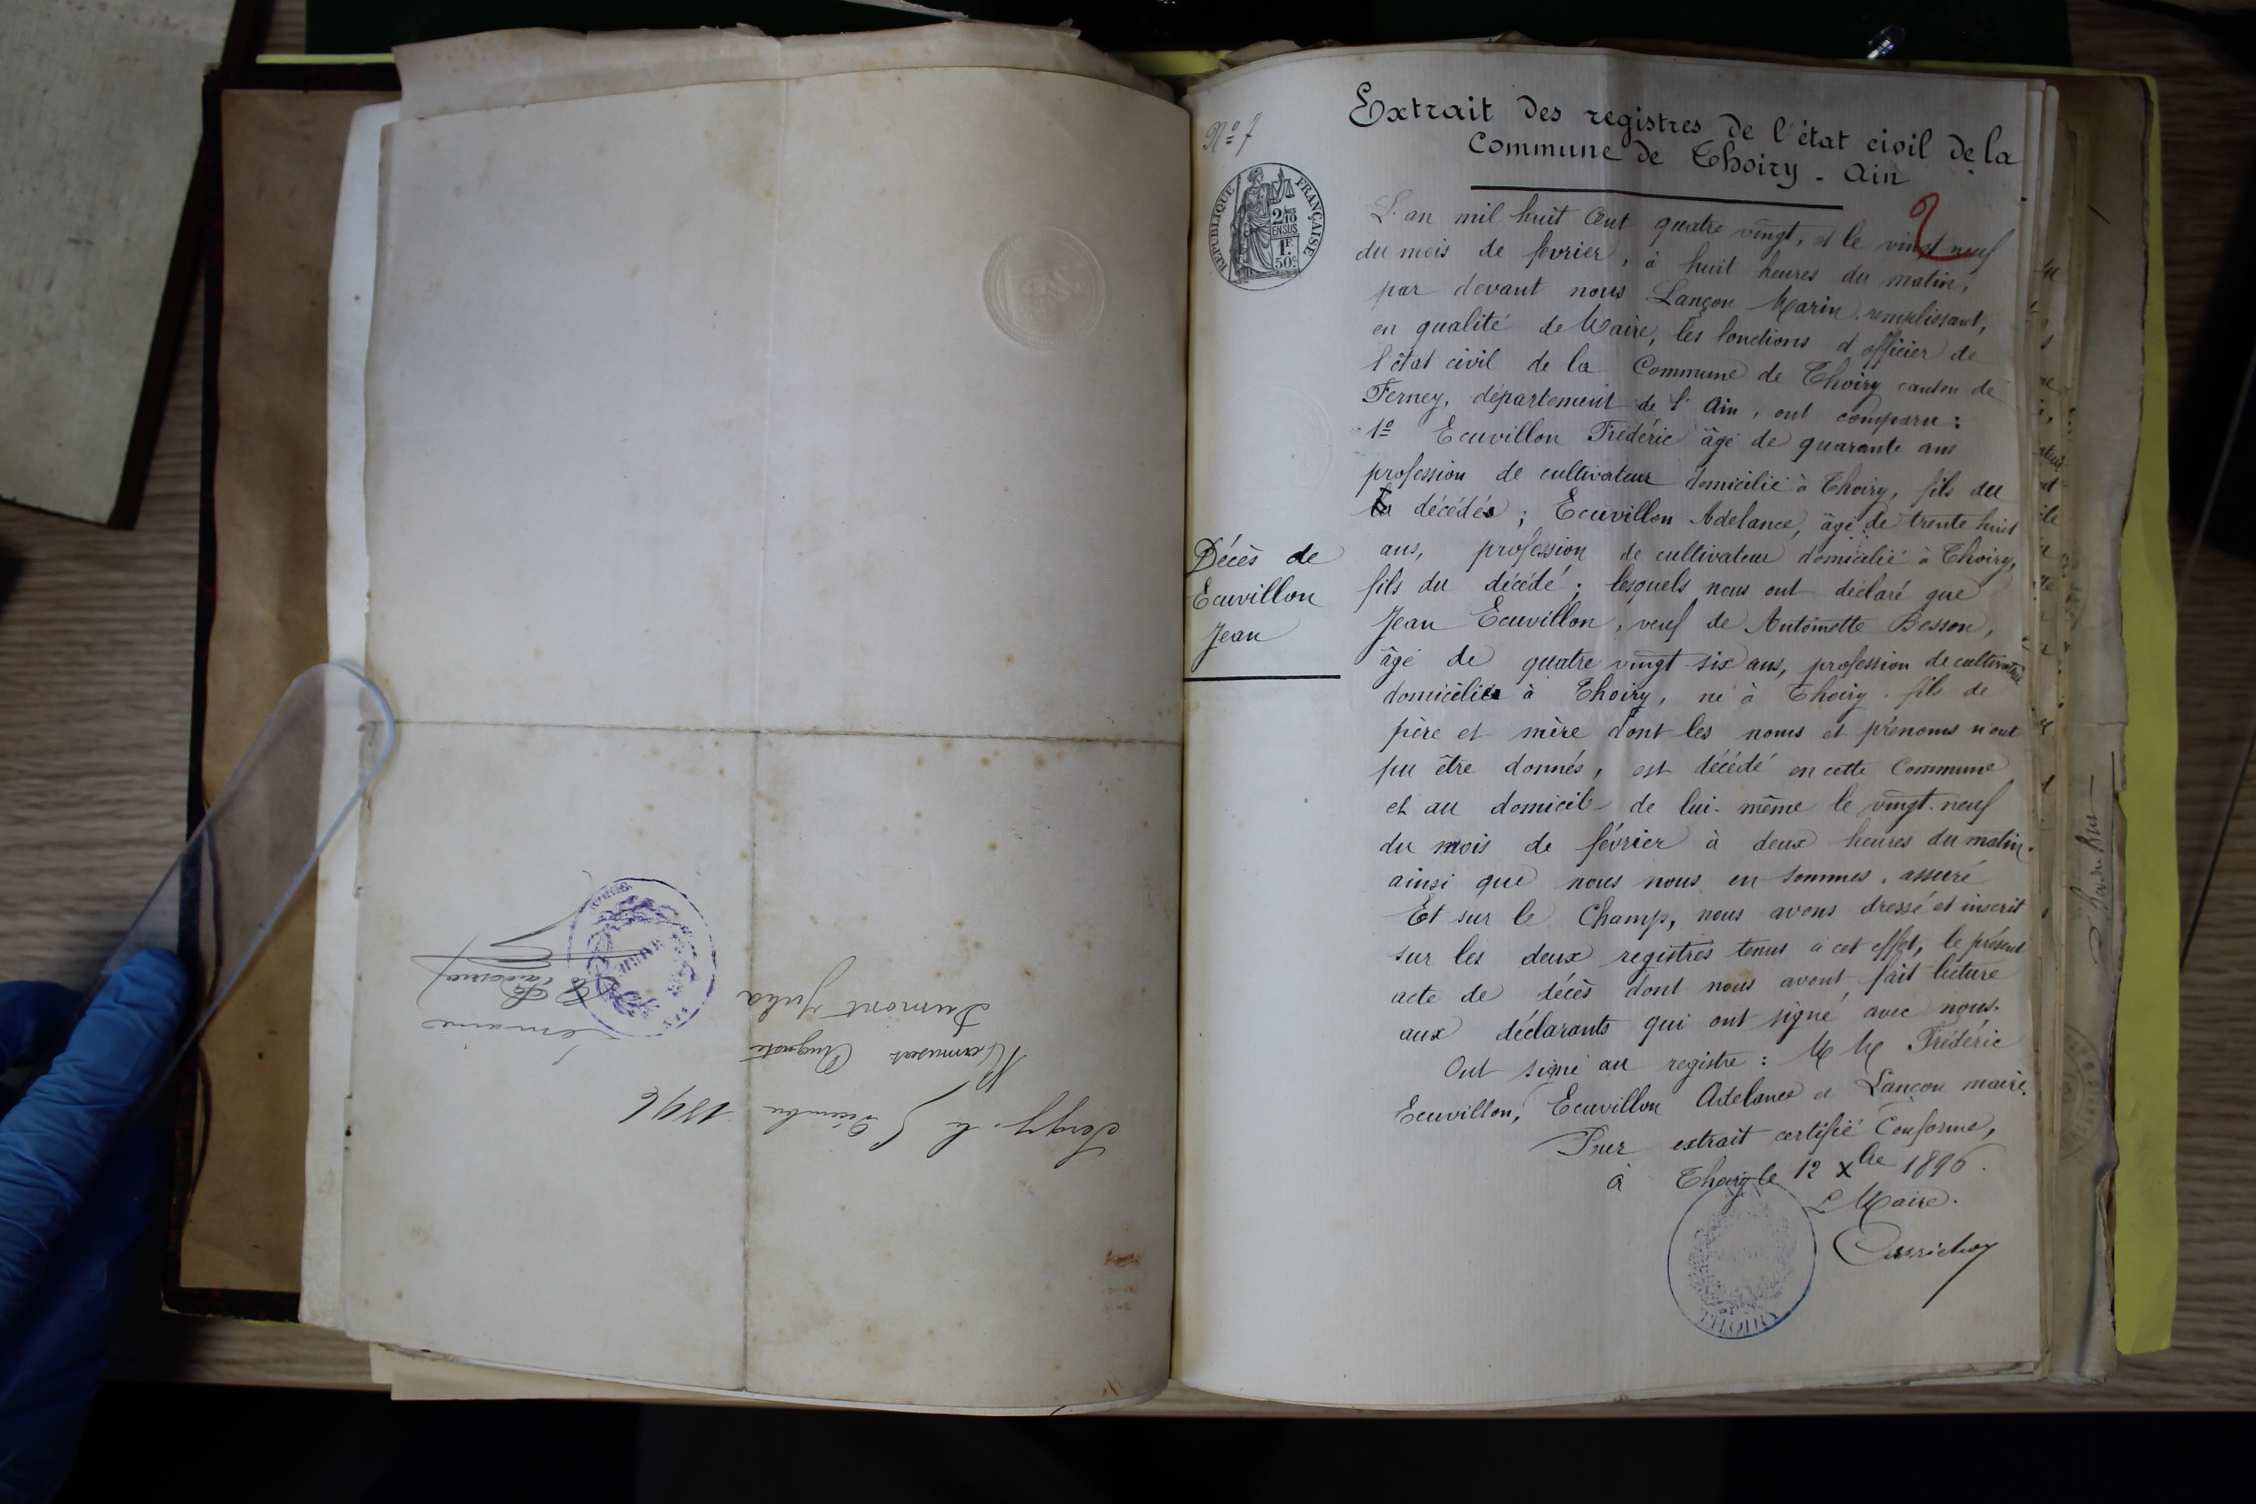 Sergy le 5 Décembre 1896
Dumont Julia
Le maire
Nº 7
RÉPUBLIQUE FRANÇAISE
2/10
EN SUS
1F
50c
Extrait des registres de l'état civil de la
Commune de Thoiry - Ain
L'an mil huit cent quatre vingt, et le vingt neuf
du mois de février, à huit heures du matin,
par devant nous Lançon Marin remplissant,
en qualité de Maire, les fonctions d'officier de
l'état civil de la Commune de Thoiry canton de
Ferney, département de l'Ain, ont comparu:
1º Ecuvillon Frédéric âgé de quarante ans
profession de cultivateur domicilié à Thoiry, fils du
décédé; Ecuvillon Adelance, âgé de trente huit
ans, profession de cultivateur domicilié à Thoiry,
fils du décédé; lesquels nous ont déclaré que
Décès de
Ecuvillon
Jean
Jean Ecuvillon, veuf de Antoinette Besson,
âgé de quatre vingt six ans, profession de cultivateur
domicilié à Thoiry, né à Thoiry fils de
père et mère dont les noms et prénoms n'ont
pu être donnés, est décédé en cette Commune
et au domicile de lui-même le vingt-neuf
du mois de février à deux heures du matin.
ainsi que nous nous en sommes assuré
Et sur le Champ, nous avons dressé et inscrit
sur les deux registres tenus à cet effet, le présent
acte de décès dont nous avont fait lecture
aux déclarants qui ont signé avec nous.
Ont signé au registre: M M Frédéric
Ecuvillon, Ecuvillon Adelance et Lançon maire.
Pour extrait certifié Conforme,
à Thoiry le 12 Xbre 1896.
L Maire.
THOIRY